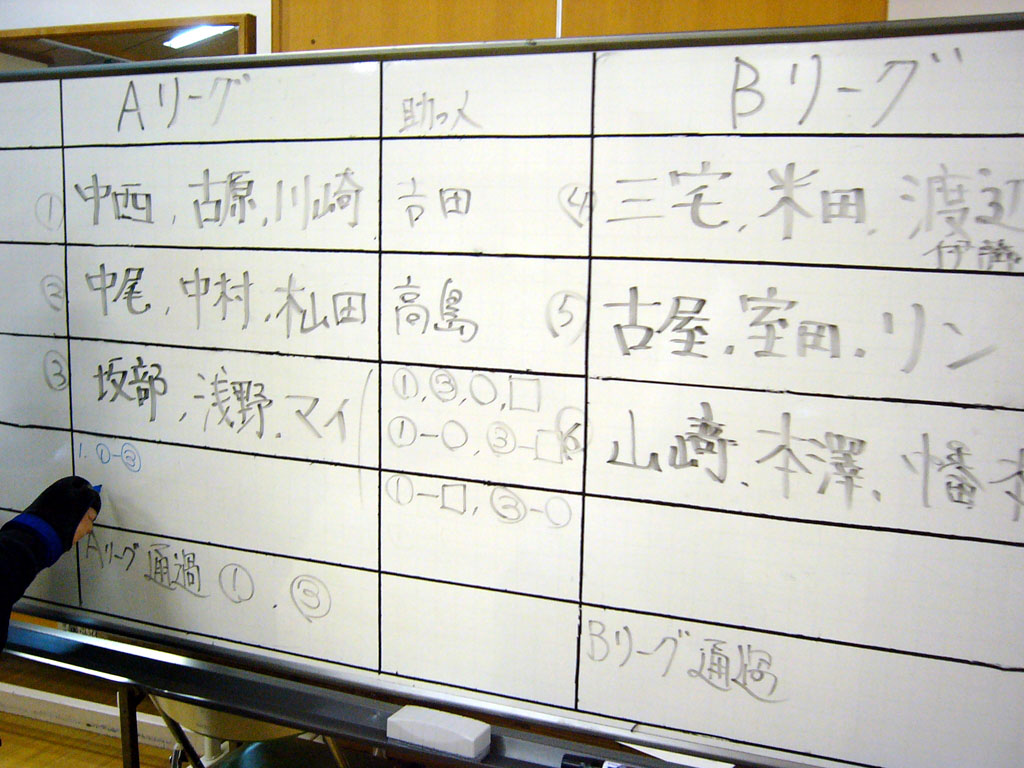 Aリーグ 助っ人 Bリーグ
① 中西, 古原, 川崎 吉田 ④ 三宅, 米田, 渡辺
伊藤
② 中尾, 中村, 杣田 高島 ⑤ 古屋, 室岡, リン
③ 坂部, 浅野, マイ ①, ③, ○, □ ⑥ 山崎, 本澤, 幡本
①-○, ③-□
1. ①-③ ①-□, ③-○
Aリーグ 通過 ①, ③
Bリーグ 通過